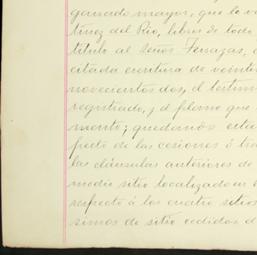 ganado mayor, que le ve
tinez del Rio, libres de todo
título al señor Terrazas, 
citada escritura de veinte
novecientos dos, el testim
registrado, y el plano que
mento; quedando esta
fecto de las cesiones ó tra
las cláusulas anteriores de
medio sitio localizado en 
respecto á los cuatro sitios
simos de sitio cedidos d